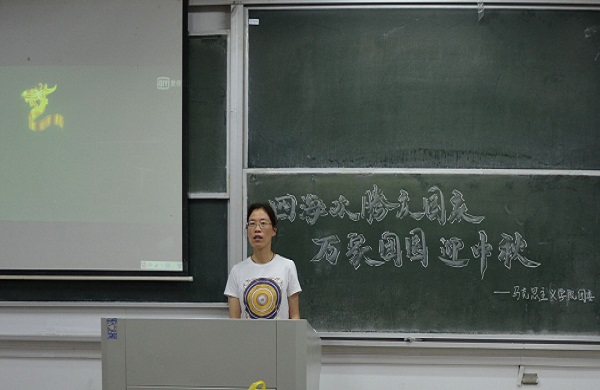 四海欢腾庆国庆
万家团圆迎中秋
——马克思主义学院团委